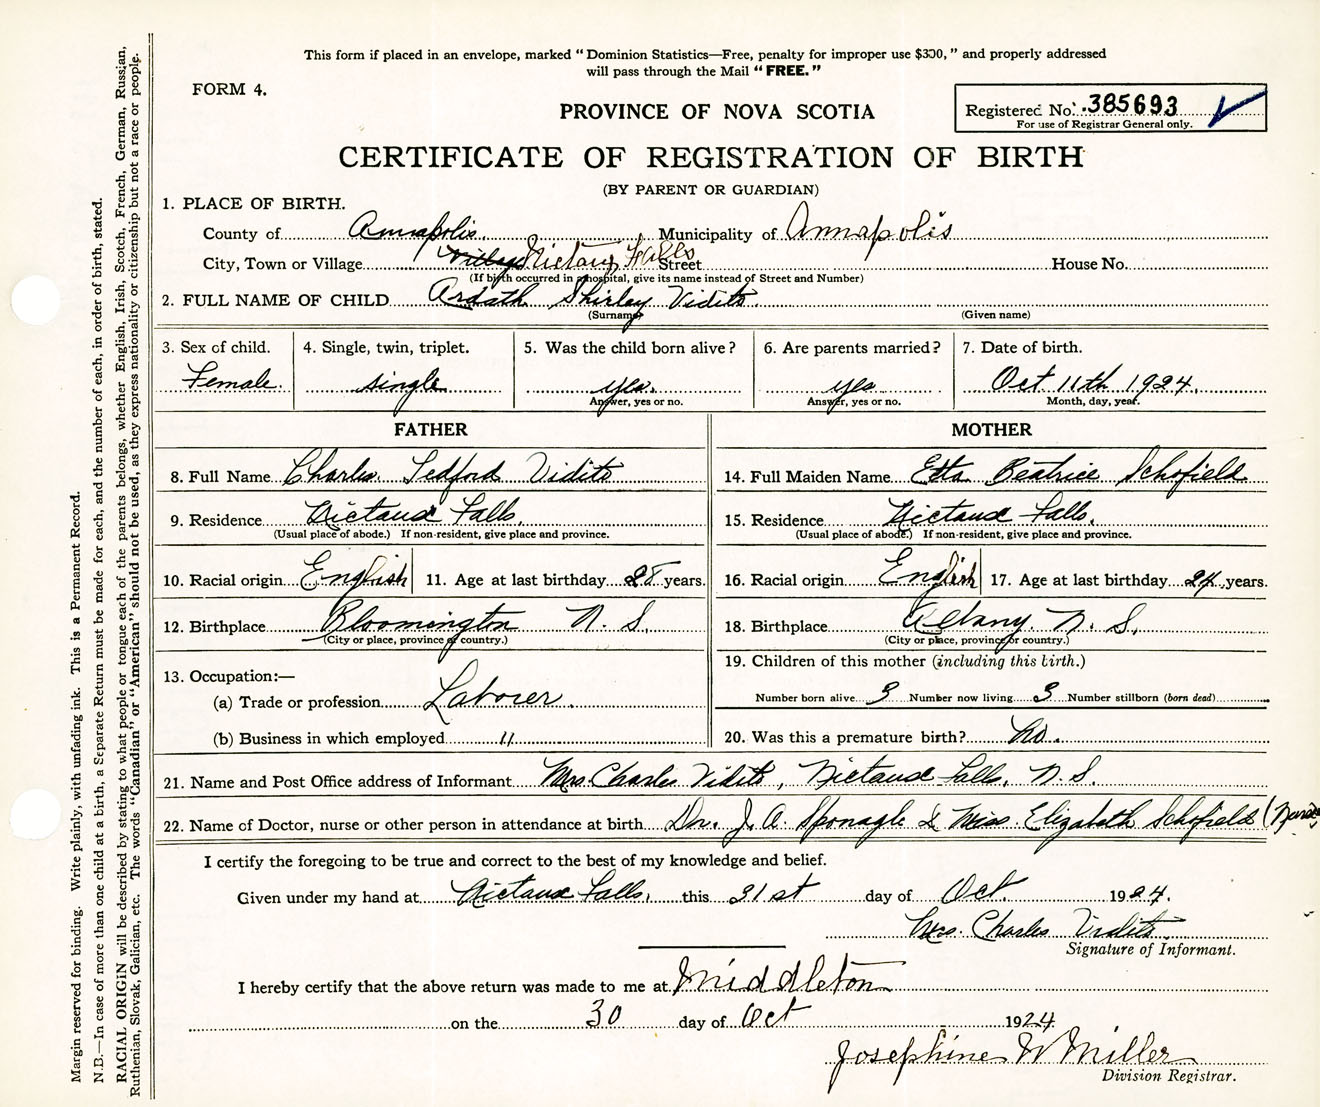 This form if placed in an envelope, marked "Dominion Statistics—Free, penalty for improper use $300," and properly addressed
will pass through the Mail "FREE."
FORM 4.
Registered No. 385693
For use of Registrar General only.
PROVINCE OF NOVA SCOTIA
CERTIFICATE OF REGISTRATION OF BIRTH
(BY PARENT OR GUARDIAN)
1. PLACE OF BIRTH.
County of Annapolis Municipality of Annapolis
City, Town or Village Village Nictaux Falls Street House No.
(If birth occurred in a hospital, give its name instead of Street and Number)
2. FULL NAME OF CHILD Ardath Shirley Vidito
(Surname) (Given name)
3. Sex of child. 4. Single, twin, triplet. 5. Was the child born alive? 6. Are parents married? 7. Date of birth.
Female. single yes. yes Oct 11th 1924.
Answer, yes or no. Answer, yes or no. Month, day, year.
FATHER MOTHER
8. Full Name Charles Tedford Vidito 14. Full Maiden Name Etta Beatrice Schofield
9. Residence Nictaux Falls. 15. Residence Nictaux Falls.
(Usual place of abode.) If non-resident, give place and province. (Usual place of abode.) If non-resident, give place and province.
10. Racial origin English 11. Age at last birthday 28 years. 16. Racial origin English 17. Age at last birthday 24 years.
12. Birthplace Bloomington N. S. 18. Birthplace Albany. N. S.
(City or place, province or country.) (City or place, province or country.)
13. Occupation:— 19. Children of this mother (including this birth.)
(a) Trade or profession Laborer. Number born alive 3 Number now living 3 Number stillborn (born dead)
(b) Business in which employed " 20. Was this a premature birth? No.
21. Name and Post Office address of Informant Mrs. Charles Vidito, Nictaux Falls, N. S.
22. Name of Doctor, nurse or other person in attendance at birth Dr. J. A. Sponagle & Miss Elizabeth Schofield (Nurse
I certify the foregoing to be true and correct to the best of my knowledge and belief.
Given under my hand at Nictaux Falls, this 31st day of Oct. 1924.
Mrs. Charles Vidito
Signature of Informant.
I hereby certify that the above return was made to me at Middleton
on the 30 day of Oct 1924
Josephine W Miller
Division Registrar.
Margin reserved for binding. Write plainly, with unfading ink. This is a Permanent Record.
N.B.—In case of more than one child at a birth, a Separate Return must be made for each, and the number of each, in order of birth, stated.
RACIAL ORIGIN will be described by stating to what people or tongue each of the parents belongs, whether English, Irish, Scotch, French, German, Russian,
Ruthenian, Slovak, Galician, etc. The words "Canadian" or "American" should not be used, as they express nationality or citizenship but not a race or people.